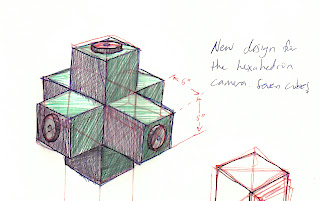 New design for
the hexahedron
camera seven cubes
6"